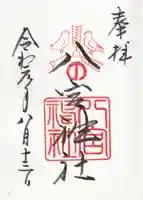 奉拝
八の宮神社
八宮
神社
令和元年八月十二日